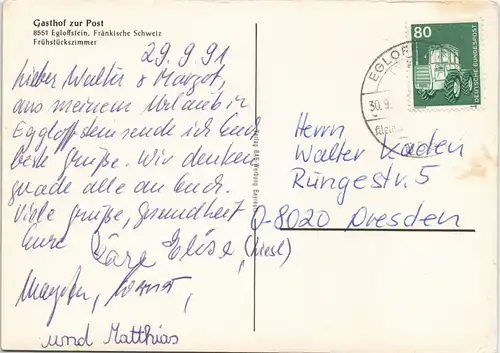 Gasthof zur Post
8551 Egloffstein, Fränkische Schweiz
Frühstückszimmer
29.9.91
Lieber Walter & Margot,
aus meinem Urlaub in
Eggloffstein sende ich Euch
beste Grüße. Wir denken
grade alle an Euch.
Viele Grüße, Gesundheit
Eure
Elise, (Liesl)
und Matthias
80
DEUTSCHE BUNDESPOST
EGLOF
30.9.
Herrn
Walter Käden
Rungestr. 5
D-8020 Dresden